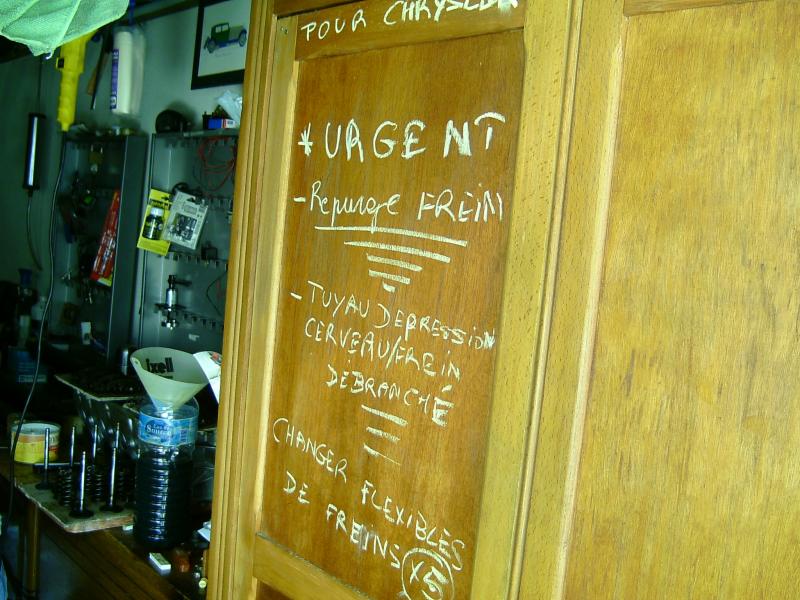 POUR CHRYSLER
* URGENT
- Repurge FREIN
- TUYAU DEPRESSION
CERVEAU/FREIN
DEBRANCHÉ
CHANGER FLEXIBLES
DE FREINS X5
ixell
Source